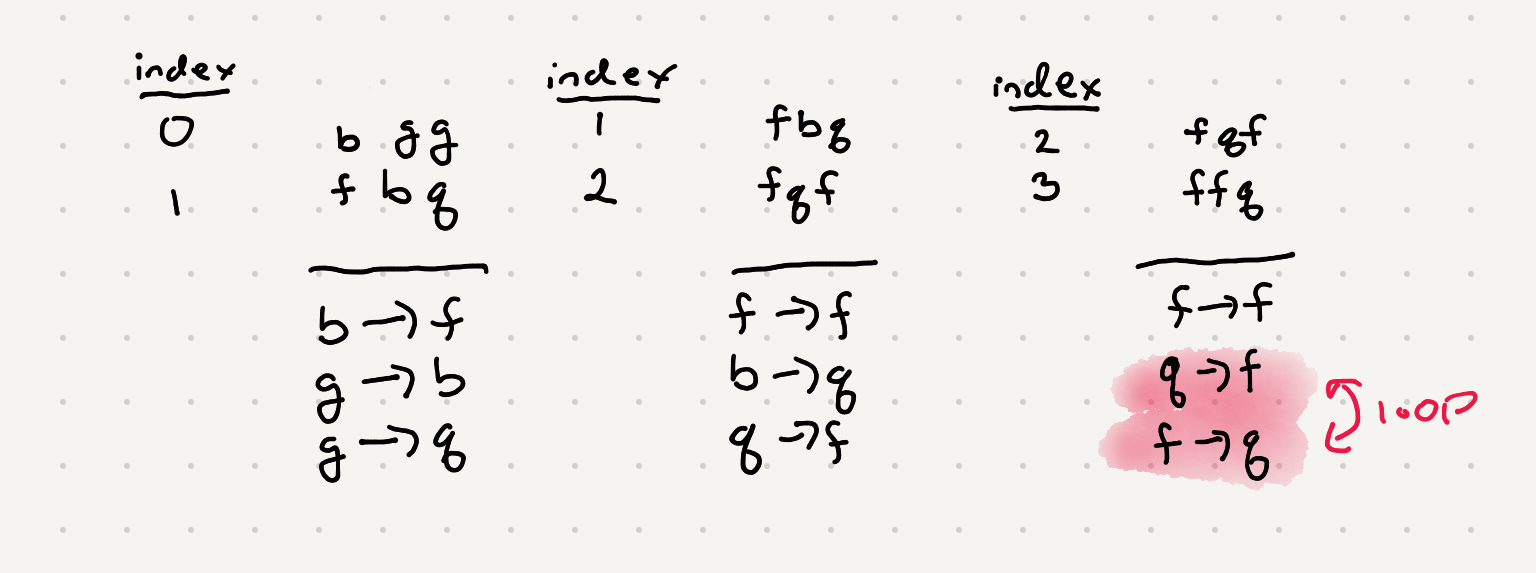 index
0 b g g
1 f b q
b → f
g → b
g → q
index
1 f b q
2 f q f
f → f
b → q
q → f
index
2 f q f
3 f f q
f → f
q → f
f → q
loop